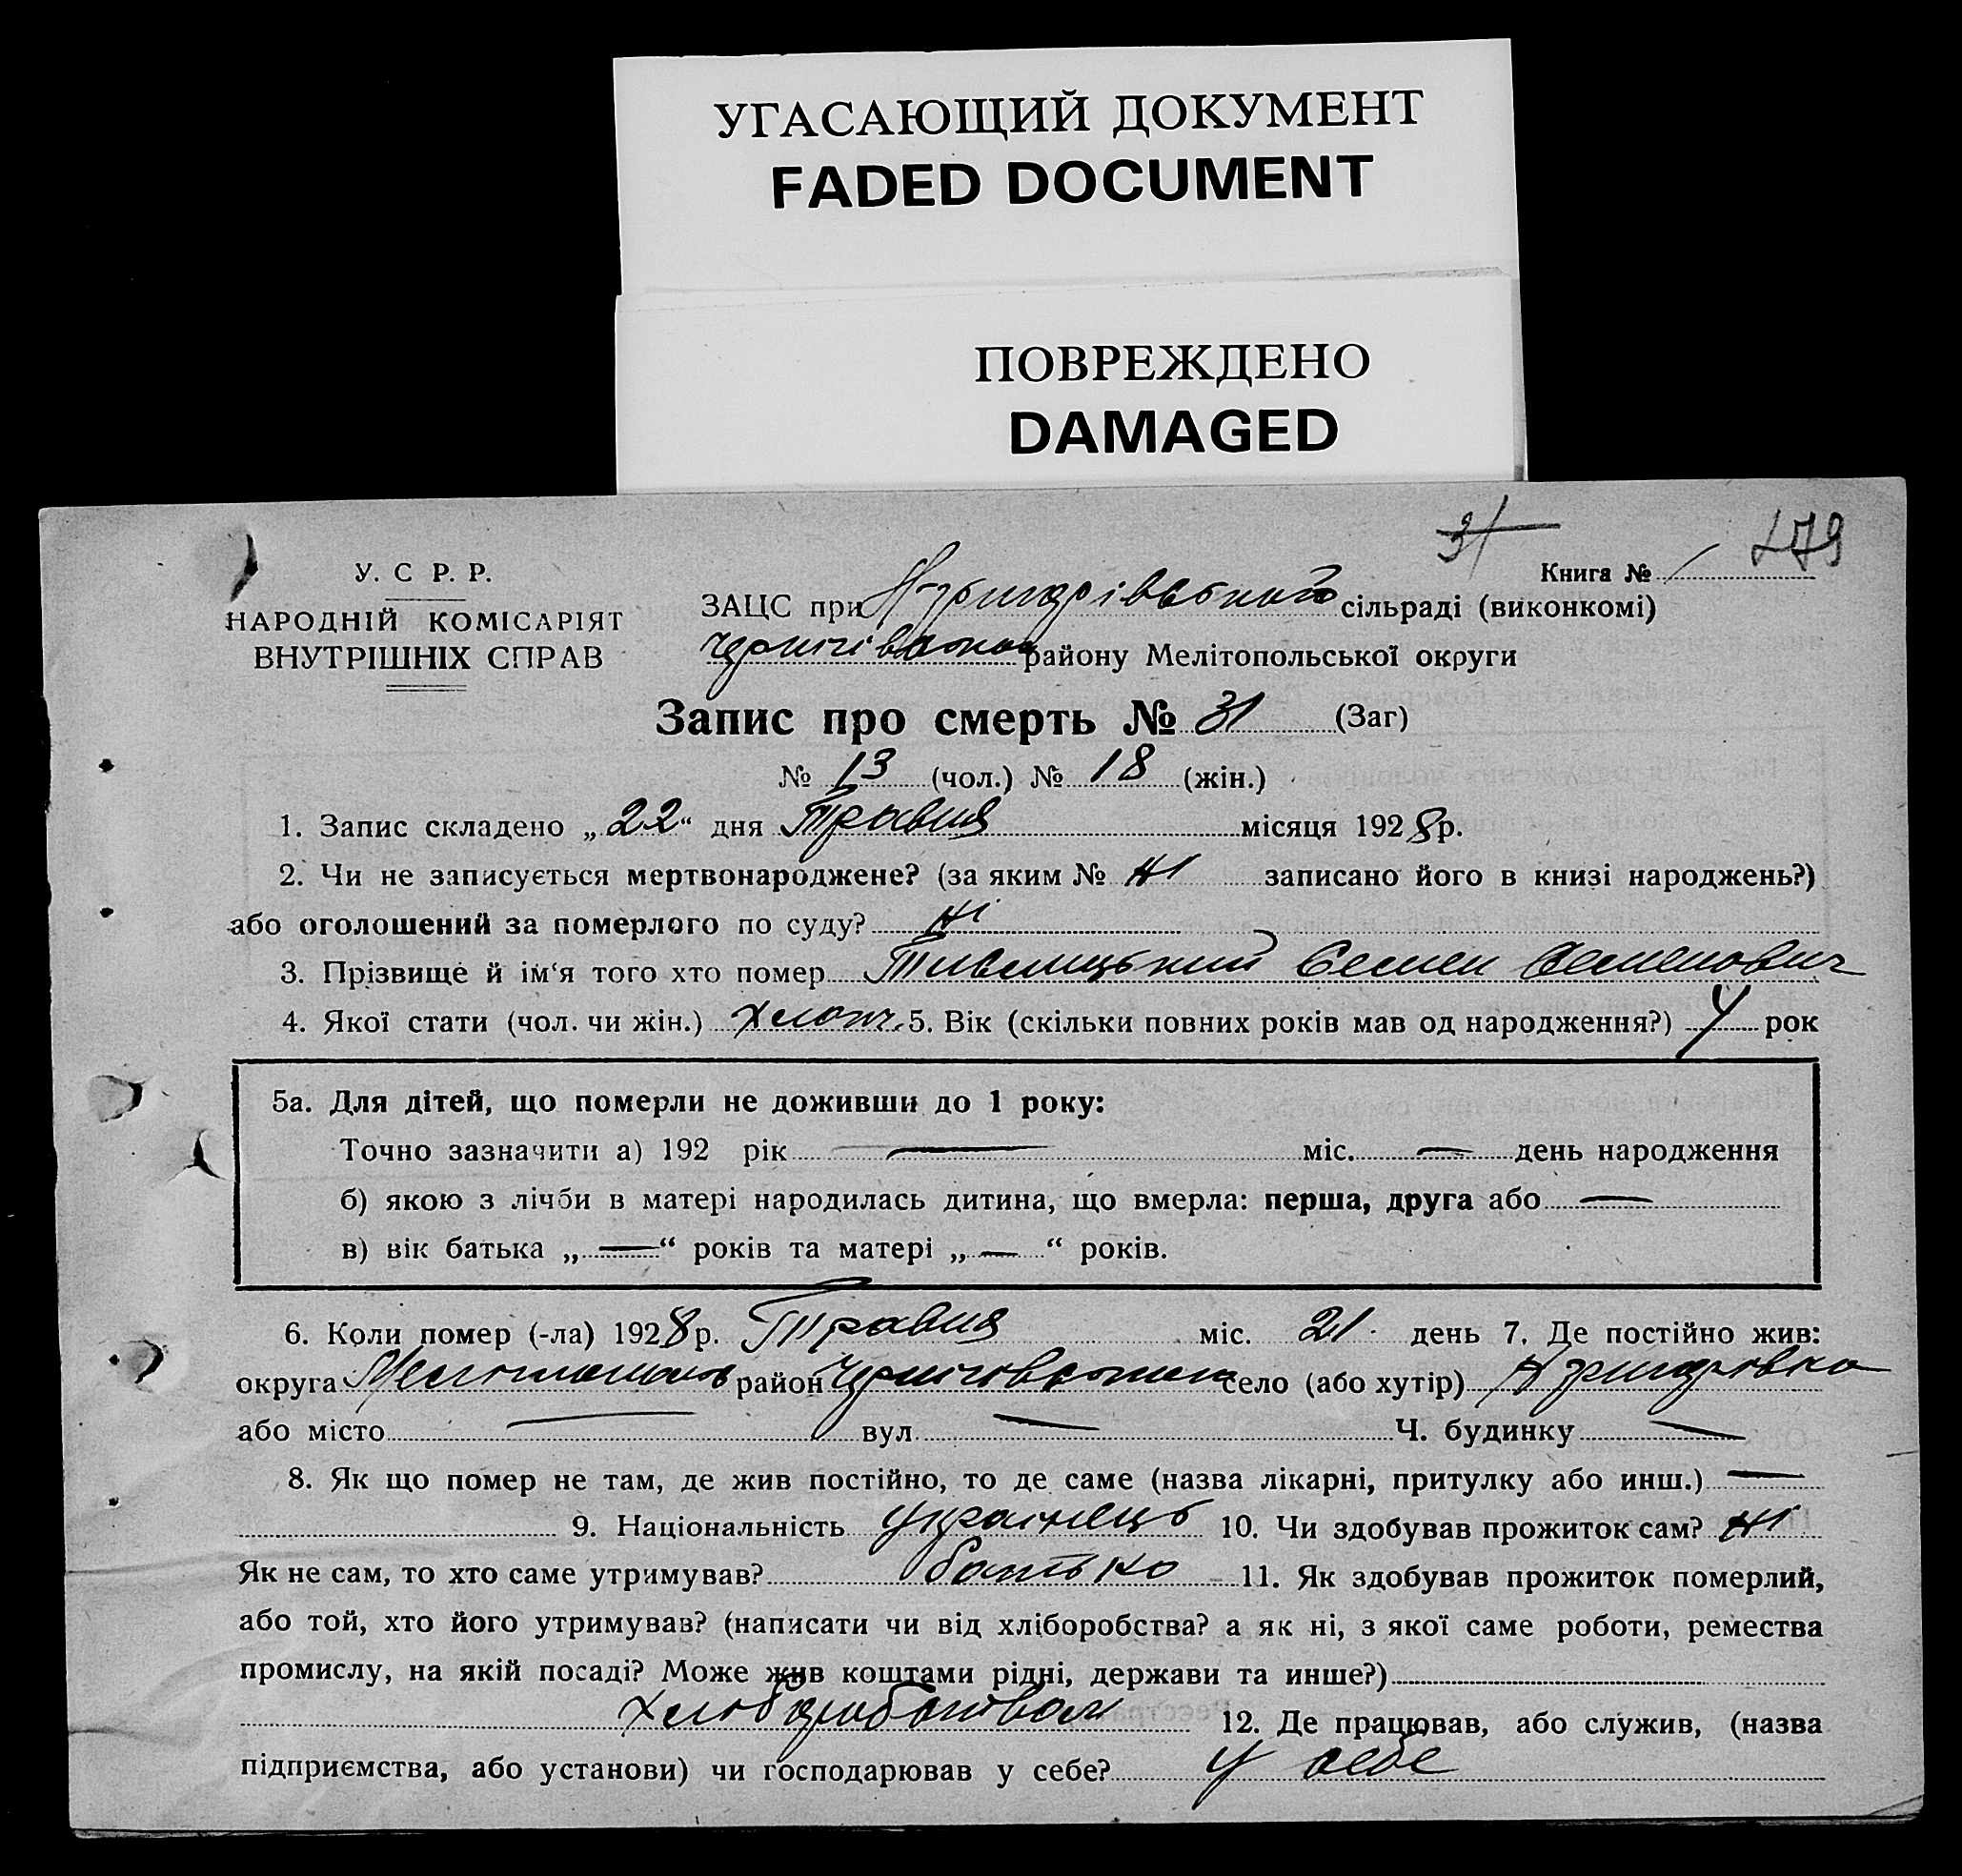 УГАСАЮЩИЙ ДОКУМЕНТ
FADED DOCUMENT
ПОВРЕЖДЕНО
DAMAGED
31
279
У. С Р. Р.
НАРОДНІЙ КОМІСАРІЯТ
ВНУТРІШНІХ СПРАВ
Книга №
ЗАЦС при сільраді (виконкомі)
району Мелітопольської округи
Запис про смерть № 31 (Заг)
№ 13 (чол.) № 18 (жін.)
1. Запис складено „22“ дня Травня місяця 1928 р.
2. Чи не записується мертвонароджене? (за яким № ні записано його в книзі народжень?)
або оголошений за померлого по суду? ні
3. Прізвище й ім‘я того хто помер Семен Семенович
4. Якої стати (чол. чи жін.) хлопч. 5. Вік (скільки повних років мав од народження?) 4 рок
5а. Для дітей, що померли не доживши до 1 року:
Точно зазначити а) 192 рік — міс. — день народження
б) якою з лічби в матері народилась дитина, що вмерла: перша, друга або —
в) вік батька „—“ років та матері „—“ років.
6. Коли помер (-ла) 1928 р. Травня міс. 21 день 7. Де постійно жив:
округа район село (або хутір)
або місто — вул — Ч. будинку —
8. Як що помер не там, де жив постійно, то де саме (назва лікарні, притулку або инш.) —
9. Національність українець 10. Чи здобував прожиток сам? ні
Як не сам, то хто саме утримував? батько 11. Як здобував прожиток померлий,
або той, хто його утримував? (написати чи від хліборобства? а як ні, з якої саме роботи, ремества
промислу, на якій посаді? Може жив коштами рідні, держави та инше?)
12. Де працював, або служив, (назва
підприємства, або установи) чи господарював у себе? у себе